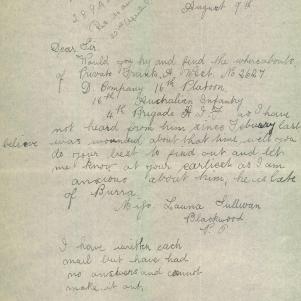 August 9th
Dear Sir
Would you try and find the whereabouts
of Private Frank, A, West. No 2627
D Company 16th Platoon
16th Australian Infantry
4th Brigade A. I. F as I have
not heard from him since Febuery last
believe was wounded about that time, well you
do your best to find out and let
me know at your earliest as I am
anxious about him, he is late
of Burra
Mrs. Launa Sullivan
Blackwood
P. O
I have written each
mail but have had
no answers and cannot
make it out,